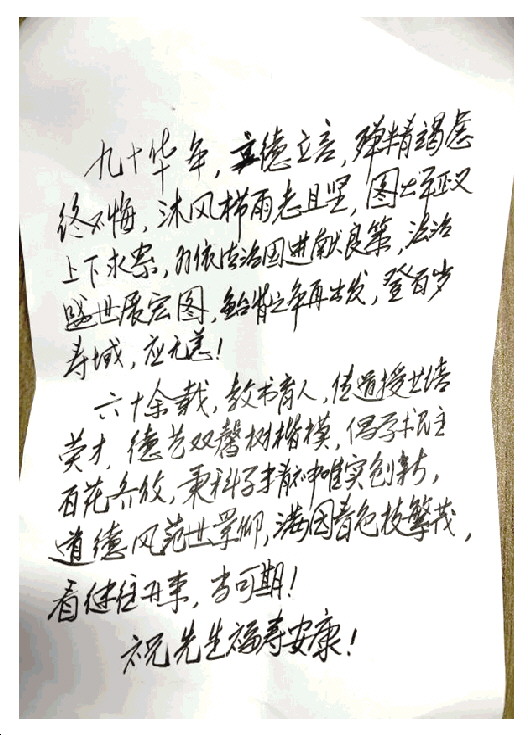 九十华年，立德立言，殚精竭虑
终不悔，沐风栉雨老且坚，图大军政又
上下求索，为依法治国进献良策，法治
盛世展宏图，鲐背之年再出发，登百岁
寿域，应无恙！
六十余载，教书育人，传道授业培
英才，德艺双馨树楷模，倡学术民主
百花齐放，秉科学精神唯实创新，
道德风范世景仰，满园春色枝繁茂，
看继往开来，当可期！
祝先生福寿安康！